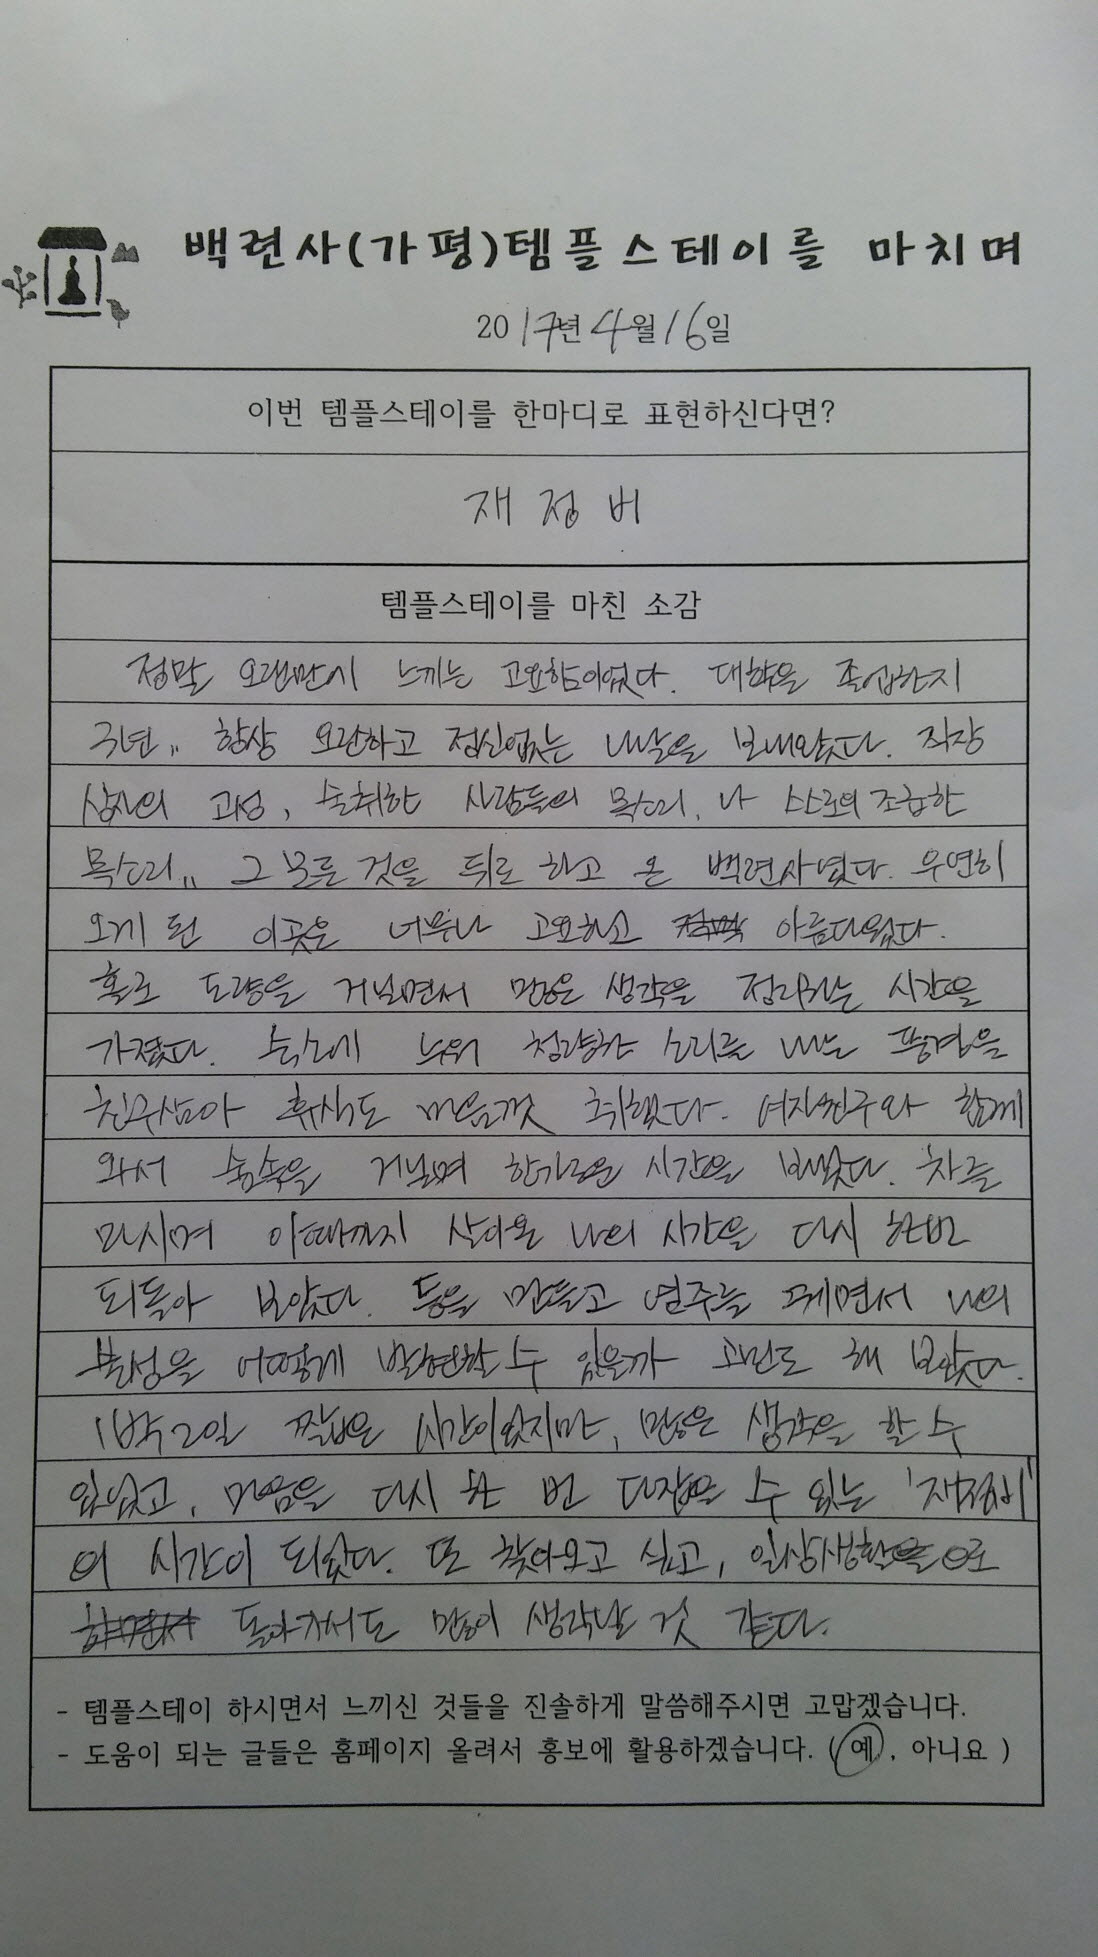 백련사(가평)템플스테이를 마치며
2017년 4월 16일
이번 템플스테이를 한마디로 표현하신다면?
재정비
템플스테이를 마친 소감
정말 오랜만에 느끼는 고요함이었다. 대학을 졸업한지
3년.. 항상 요란하고 정신없는 나날을 보내왔다. 직장
상사의 괴성, 술취한 사람들의 목소리, 나 스스로의 조급한
목소리.. 그 모든 것을 뒤로 하고 온 백련사였다. 우연히
오게 된 이곳은 너무나 고요하고 아름다웠다.
홀로 도량을 거닐면서 많은 생각을 정리하는 시간을
가졌다. 숙소에 누워 청량한 소리를 내는 풍경을
친구삼아 휴식도 마음껏 취했다. 여자친구와 함께
와서 숲속을 거닐며 한가로운 시간을 보냈다. 차를
마시며 이때까지 살아온 나의 시간을 다시 한번
되돌아 보았다. 등을 만들고 염주를 꿰면서 나의
불성을 어떻게 발현할 수 있을까 고민도 해 보았다.
1박2일 짧은 시간이었지만, 많은 생각을 할 수
있었고, 마음을 다시 한 번 다잡을 수 있는 '재정비'
의 시간이 되었다. 또 찾아오고 싶고, 일상생활으로
돌아가서도 많이 생각날 것 같다.
- 템플스테이 하시면서 느끼신 것들을 진솔하게 말씀해주시면 고맙겠습니다.
- 도움이 되는 글들은 홈페이지 올려서 홍보에 활용하겠습니다. ( 예 , 아니요 )